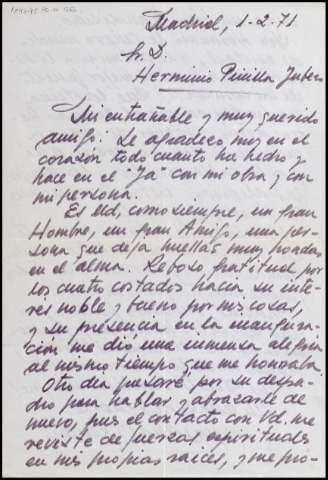 Madrid, 1-2-71
Sr. D.
Herminio Pinilla Yubero
Mi entrañable y muy querido
amigo: Le agradezco muy en el
corazón todo cuanto ha hecho y
hace en el "Ya" con mi obra y con
mi persona.
Es Vd, como siempre, un gran
Hombre, un gran Amigo, una per-
sona que deja huellas muy hondas
en el alma. Reboso gratitud por
los cuatro costados hacia su inte-
rés noble y bueno por mis cosas,
y su presencia en la inaugura-
ción me dio una inmensa alegría
al mismo tiempo que me honraba.
Otro día pasaré por su despa-
cho para hablar y abrazarle de
nuevo, pues el contacto con Vd. me
reviste de fuerzas espirituales
en mis propias raíces, y me pro-